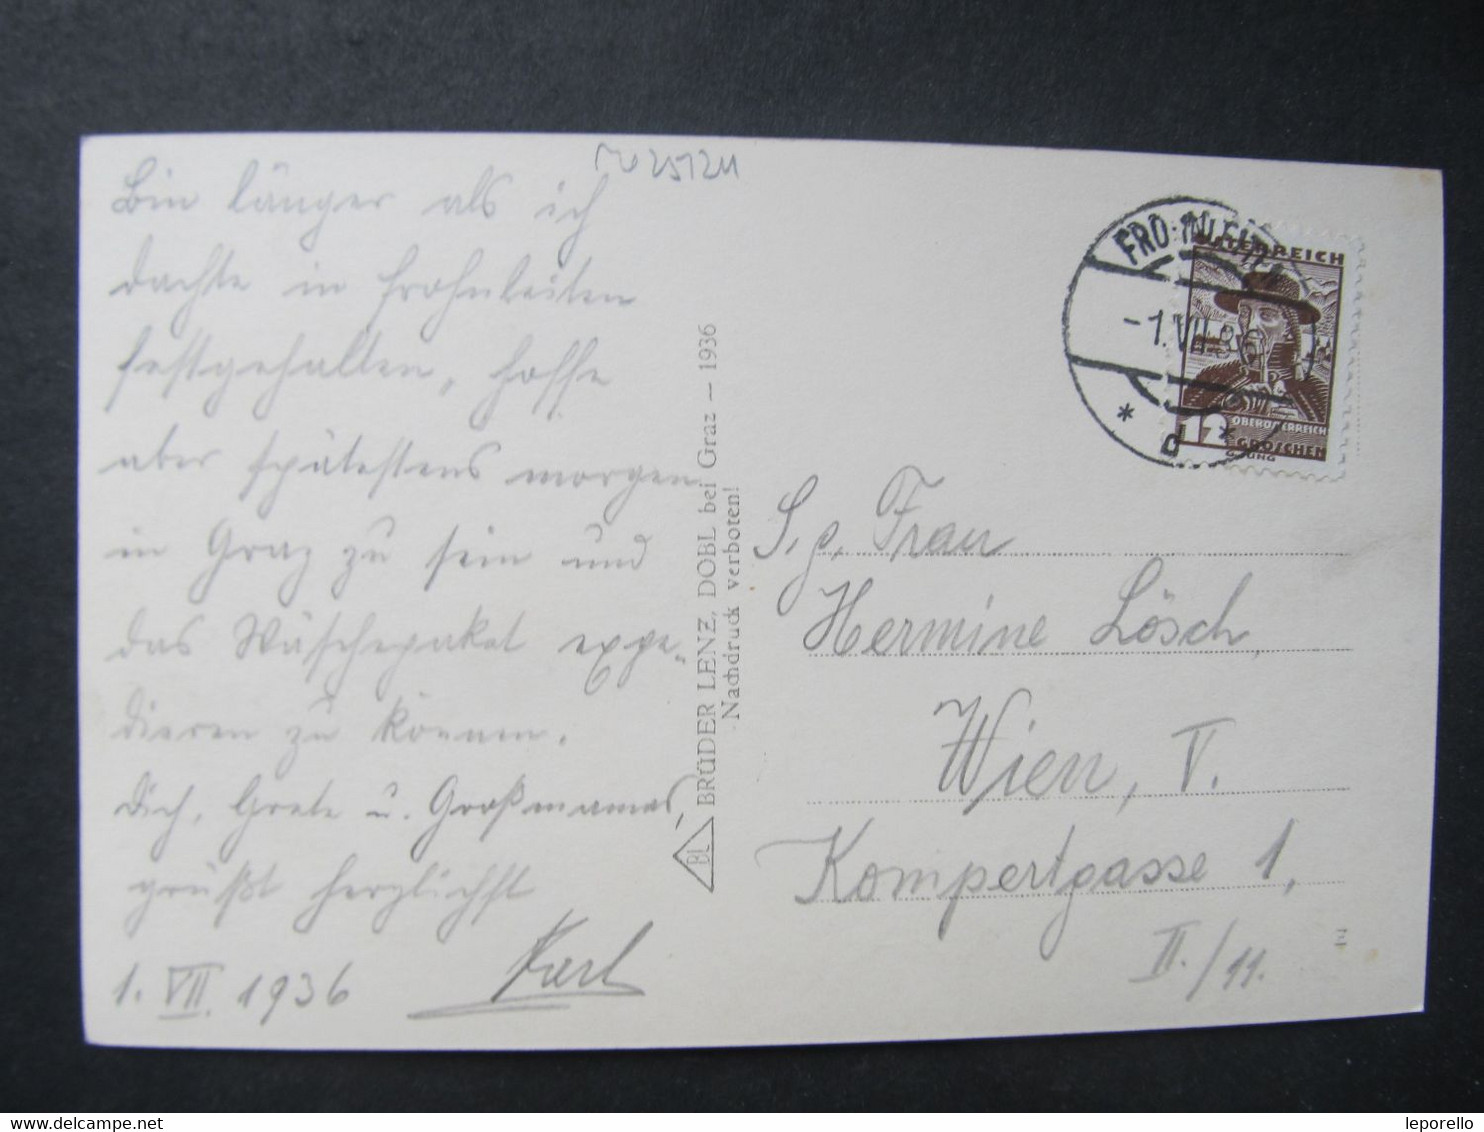 Bin länger als ich
dachte in Frohnleiten
festgehalten, hoffe
aber spätestens morgen
in Graz zu sein und
das Wäschepaket expe-
dieren zu können.
Dich, Grete u. Großmama,
grüßt herzlichst
Karl
1. VII. 1936
BL
BRÜDER LENZ, DOBL bei Graz — 1936
Nachdruck verboten!
-1.VII.36
* d *
ÖSTERREICH
12
OBERÖSTERREICH
GROSCHEN
S.g. Frau
Hermine Lösch,
Wien, V.
Kompertgasse 1,
II./11.
delcampe.net
leporello